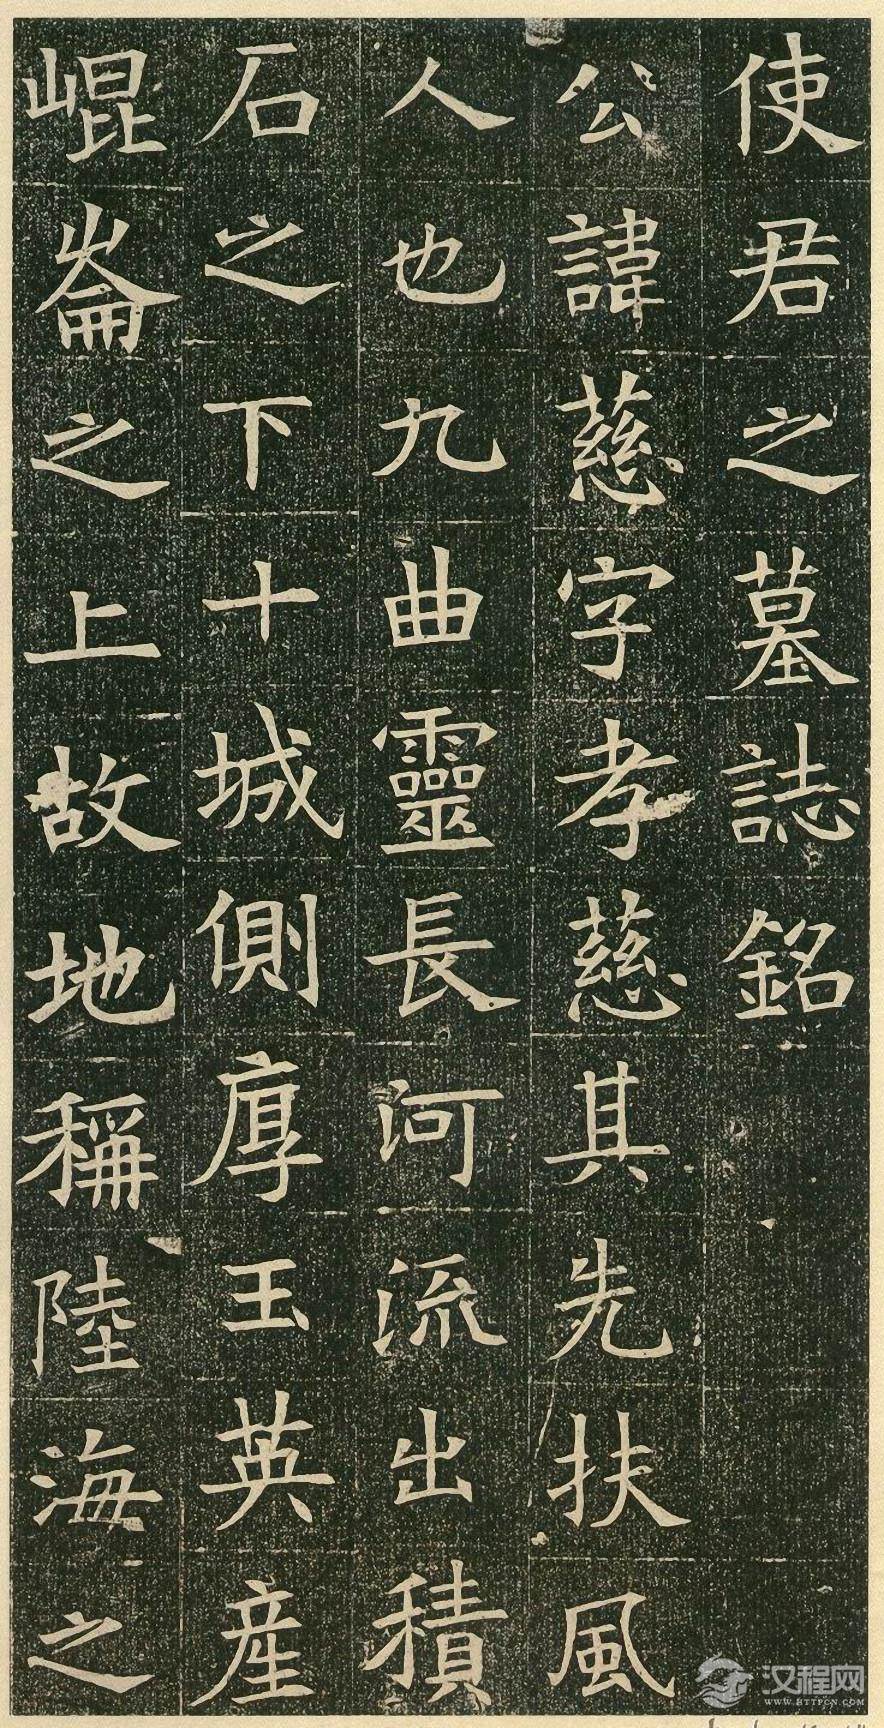 使君之墓誌銘
公諱慈字孝慈其先扶風
人也九曲靈長河流出積
石之下十城側厚玉英産
崐崙之上故地稱陸海之
汉程网
WWW.HTTPCN.COM